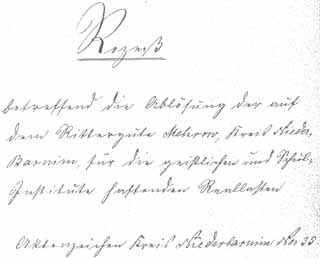 Rezeß
betreffend die Ablösung der auf
dem Rittergute Mehrow, Kreis Nieder-
Barnim, für die geistlichen und Schul-
Institute haftenden Reallasten
Aktenzeichen Kreis Niederbarnim No 35.